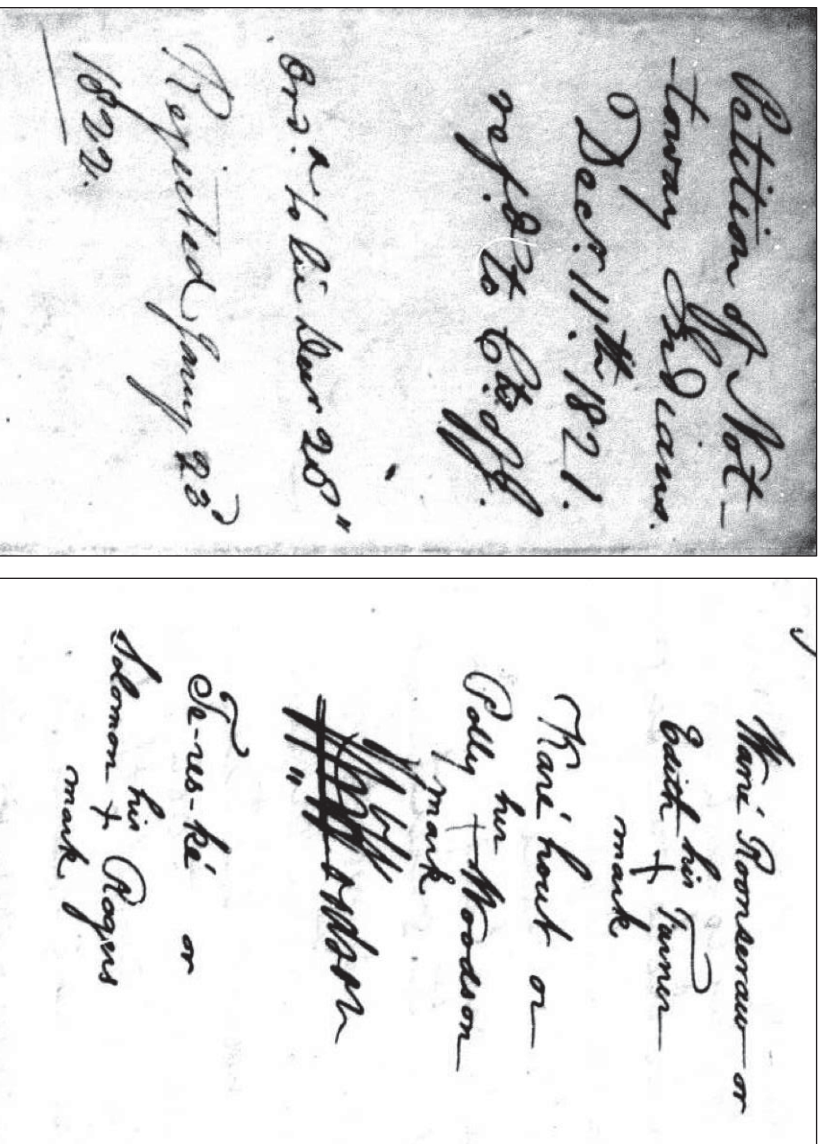 Petition of Not-
-toway Indians.
Decr. 11th 1821.
refd. to Cts of J.
Ord. to lie Decr 20"
Rejected Jany 23d
1822.
Warré Roonseraw or
Edith his Turner
+
mark
Karé hout or
Polly her + Woodson
mark
Te-res-ké or
Solomon his + Rogers
mark